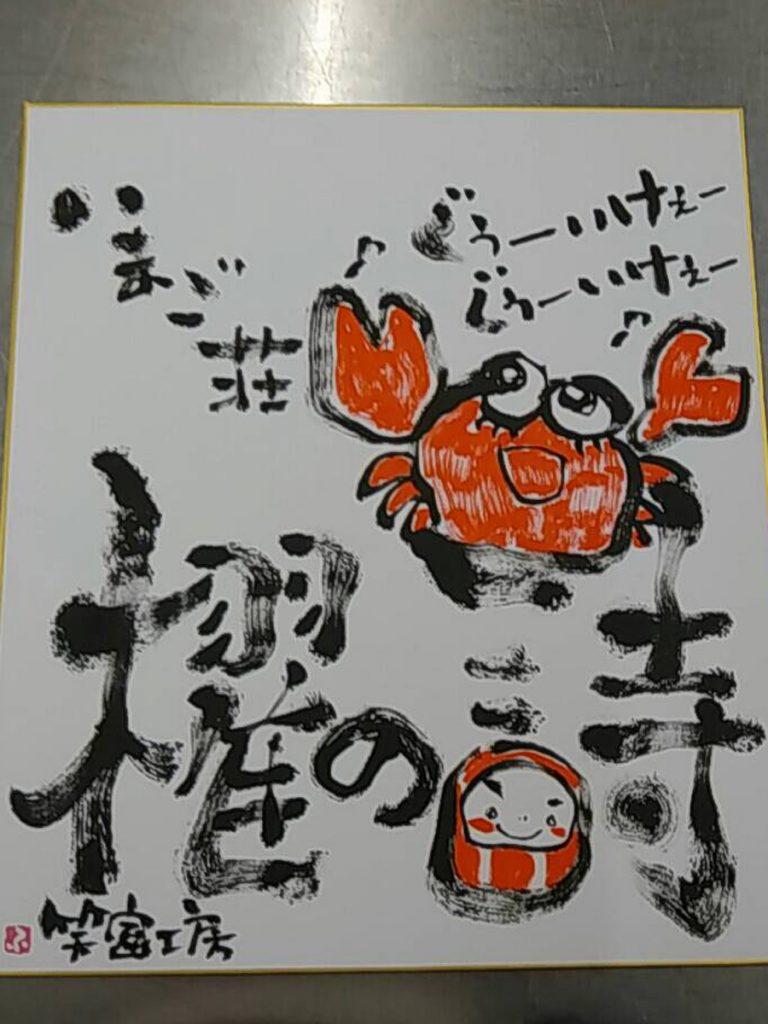 いまご荘
ぐぅーいけぇー
ぐぅーいけぇー
櫂の詩
笑富工房